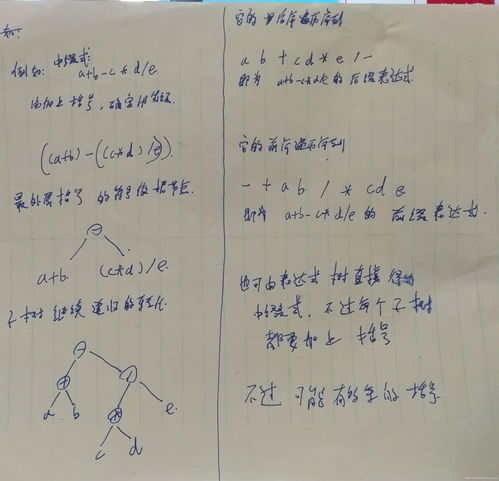 如:
例如: 中缀式:
a+b-c*d/e
①加上括号,确定优先级
((a+b)-((c*d)/e))
最外层括号的符号做根节点
-
a+b. (c*d)/e.
子树继续递归的转化
-
+ /
a b * e.
c d
它的后序遍历序列
a b + cd * e / -
即为 a+b-c*d/e 的后缀表达式
它的前序遍历序列
- + a b / * cd e
即为 a+b-c*d/e 的 前缀表达式.
也可由表达式树直接得
中缀式, 不过每个子树
都要加上 括号
不过 可能有多余的括号